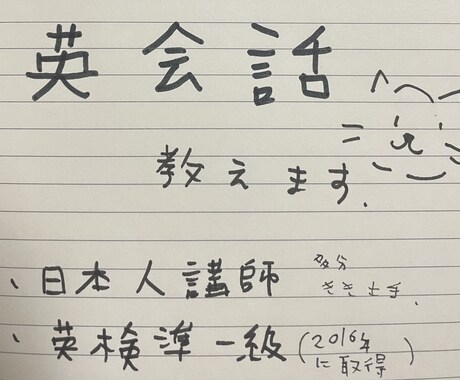 英会話
教えます.
、日本人講師 多分
きき上手.
、英検準一級(2016年
に取得)